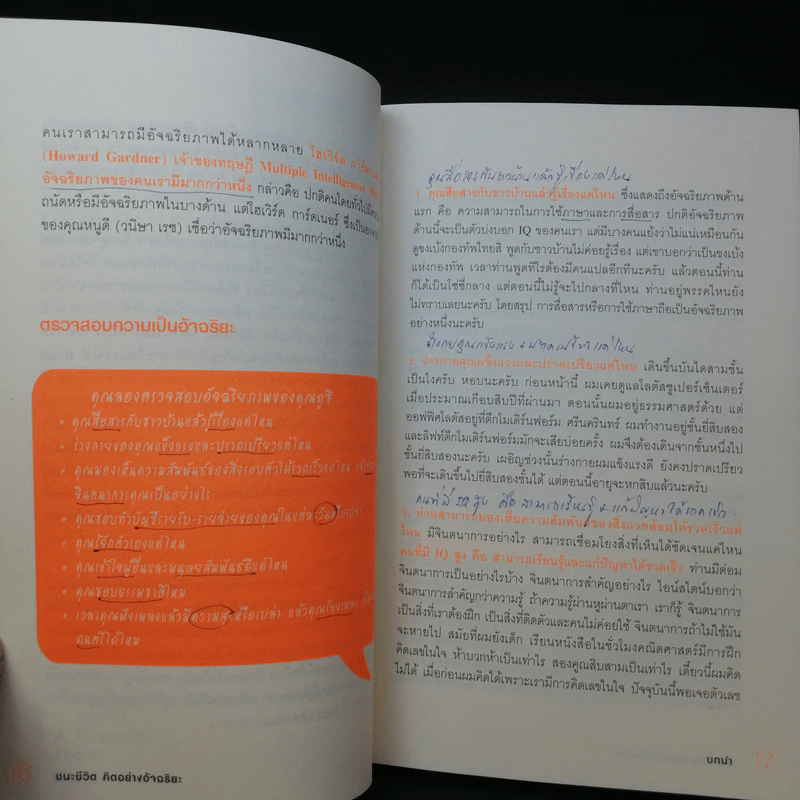 คนเราสามารถมีอัจฉริยภาพได้หลากหลาย โฮเวิร์ด การ์ดเนอร์
(Howard Gardner) เจ้าของทฤษฎี Multiple Intelligences
อัจฉริยภาพของคนเรามีมากกว่าหนึ่ง กล่าวคือ ปกติคนโดยทั่วไปมี
ถนัดหรือมีอัจฉริยภาพในบางด้าน แต่โฮเวิร์ด การ์ดเนอร์ ซึ่งเป็นอาจารย์
ของคุณหนูดี (วนิษา เรซ) เชื่อว่าอัจฉริยภาพมีมากกว่าหนึ่ง
ตรวจสอบความเป็นอัจฉริยะ
คุณลองตรวจสอบอัจฉริยภาพของคุณดูซิ
• คุณสื่อสารกับชาวบ้านแล้วรู้เรื่องแค่ไหน
• ร่างกายของคุณแข็งแรงและปราดเปรียวแค่ไหน
• คุณมองเห็นความสัมพันธ์ของสิ่งรอบตัวได้รวดเร็วแค่ไหน
จินตนาการคุณเป็นอย่างไร
• คุณชอบทำบัญชีรายรับ-รายจ่ายของคุณในแต่ละวันหรือเปล่า
• คุณรู้จักตัวเองแค่ไหน
• คุณเข้าใจผู้อื่นและมนุษยสัมพันธ์ดีแค่ไหน
• คุณชอบธรรมชาติไหม
• เวลาคุณฟังเพลงแล้วมีความสุขหรือเปล่า แล้วคุณร้องเพลง
ดนตรีได้ไหม
16 ชนะชีวิต คิดอย่างอัจฉริยะ
คุณสื่อสารกับชาวบ้านแล้วรู้เรื่องแค่ไหน
1. คุณสื่อสารกับชาวบ้านแล้วรู้เรื่องแค่ไหน ซึ่งแสดงถึงอัจฉริยภาพด้าน
แรก คือ ความสามารถในการใช้ภาษาและการสื่อสาร ปกติอัจฉริยภาพ
ด้านนี้จะเป็นตัวบ่งบอก IQ ของคนเรา แต่มีบางคนแย้งว่าไม่แน่เหมือนกัน
ดูขงเบ้งกองทัพไทยสิ พูดกับชาวบ้านไม่ค่อยรู้เรื่อง แต่เขาบอกว่าเป็นขงเบ้ง
แห่งกองทัพ เวลาท่านพูดทีไรต้องมีคนแปลอีกทีนะครับ แล้วตอนนี้ท่าน
ก็ได้เป็นโซ่ซี่กลาง แต่ตอนนี้ไม่รู้จะไปกลางที่ไหน ท่านอยู่พรรคไหนยัง
ไม่ทราบเลยนะครับ โดยสรุป การสื่อสารหรือการใช้ภาษาถือเป็นอัจฉริยภาพ
อย่างหนึ่งนะครับ
ร่างกายคุณแข็งแรง และปราดเปรียวแค่ไหน
2. ร่างกายคุณแข็งแรงและปราดเปรียวแค่ไหน เดินขึ้นบันไดสามชั้น
เป็นไงครับ หอบนะครับ ก่อนหน้านี้ ผมเคยดูแลโลตัสซูเปอร์เซ็นเตอร์
เมื่อประมาณเกือบสิบปีที่ผ่านมา ตอนนั้นผมอยู่ธรรมศาสตร์ด้วย แต่
ออฟฟิศโลตัสอยู่ที่ตึกโมเดิร์นฟอร์ม ศรีนครินทร์ ผมทำงานอยู่ชั้นยี่สิบสอง
และลิฟท์ตึกโมเดิร์นฟอร์มมักจะเสียบ่อยครั้ง ผมจึงต้องเดินจากชั้นหนึ่งไป
ชั้นยี่สิบสองนะครับ เผอิญช่วงนั้นร่างกายผมแข็งแรงดี ยังคงปราดเปรียว
พอที่จะเดินขึ้นไปยี่สิบสองชั้นได้ แต่ตอนนี้อายุจะหกสิบแล้วนะครับ
คนที่มี IQ สูง คือ สามารถเรียนรู้และแก้ปัญหาได้รวดเร็ว
3. ท่านสามารถมองเห็นความสัมพันธ์ของสิ่งแวดล้อมได้รวดเร็วแค่
ไหน มีจินตนาการอย่างไร สามารถเชื่อมโยงสิ่งที่เห็นได้ชัดเจนแค่ไหน
คนที่มี IQ สูง คือ สามารถเรียนรู้และแก้ปัญหาได้รวดเร็ว ท่านมีต่อม
จินตนาการเป็นอย่างไรบ้าง จินตนาการสำคัญอย่างไร ไอน์สไตน์บอกว่า
จินตนาการสำคัญกว่าความรู้ ถ้าความรู้ผ่านหูผ่านตาเรา เราก็รู้ จินตนาการ
เป็นสิ่งที่เราต้องฝึก เป็นสิ่งที่ติดตัวและคนไม่ค่อยใช้ จินตนาการถ้าไม่ใช้มัน
จะหายไป สมัยที่ผมยังเด็ก เรียนหนังสือในชั่วโมงคณิตศาสตร์มีการฝึก
คิดเลขในใจ ห้าบวกห้าเป็นเท่าไร สองคูณสิบสามเป็นเท่าไร เดี๋ยวนี้ผมคิด
ไม่ได้ เมื่อก่อนผมคิดได้เพราะเรามีการคิดเลขในใจ ปัจจุบันนี้พอเจอตัวเลข
บทนำ 17